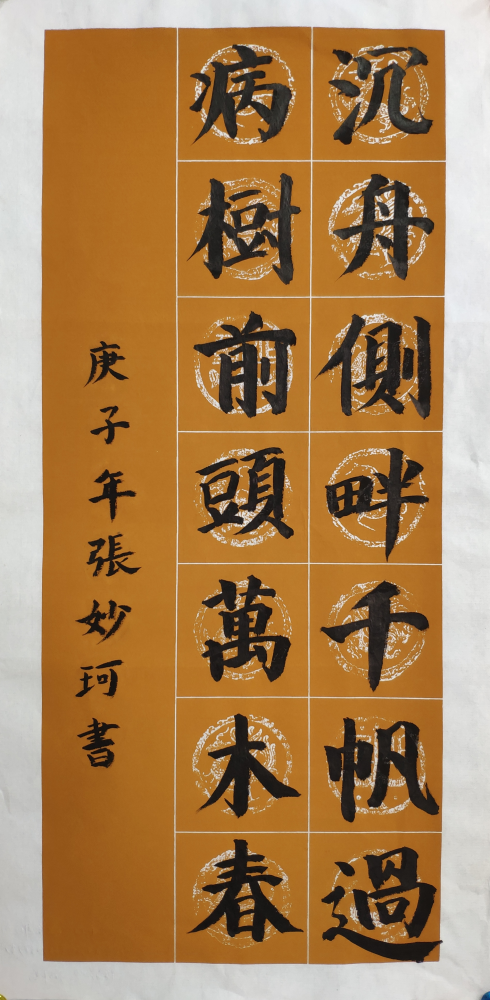 沉舟側畔千帆過
病樹前頭萬木春
庚子年張妙珂書